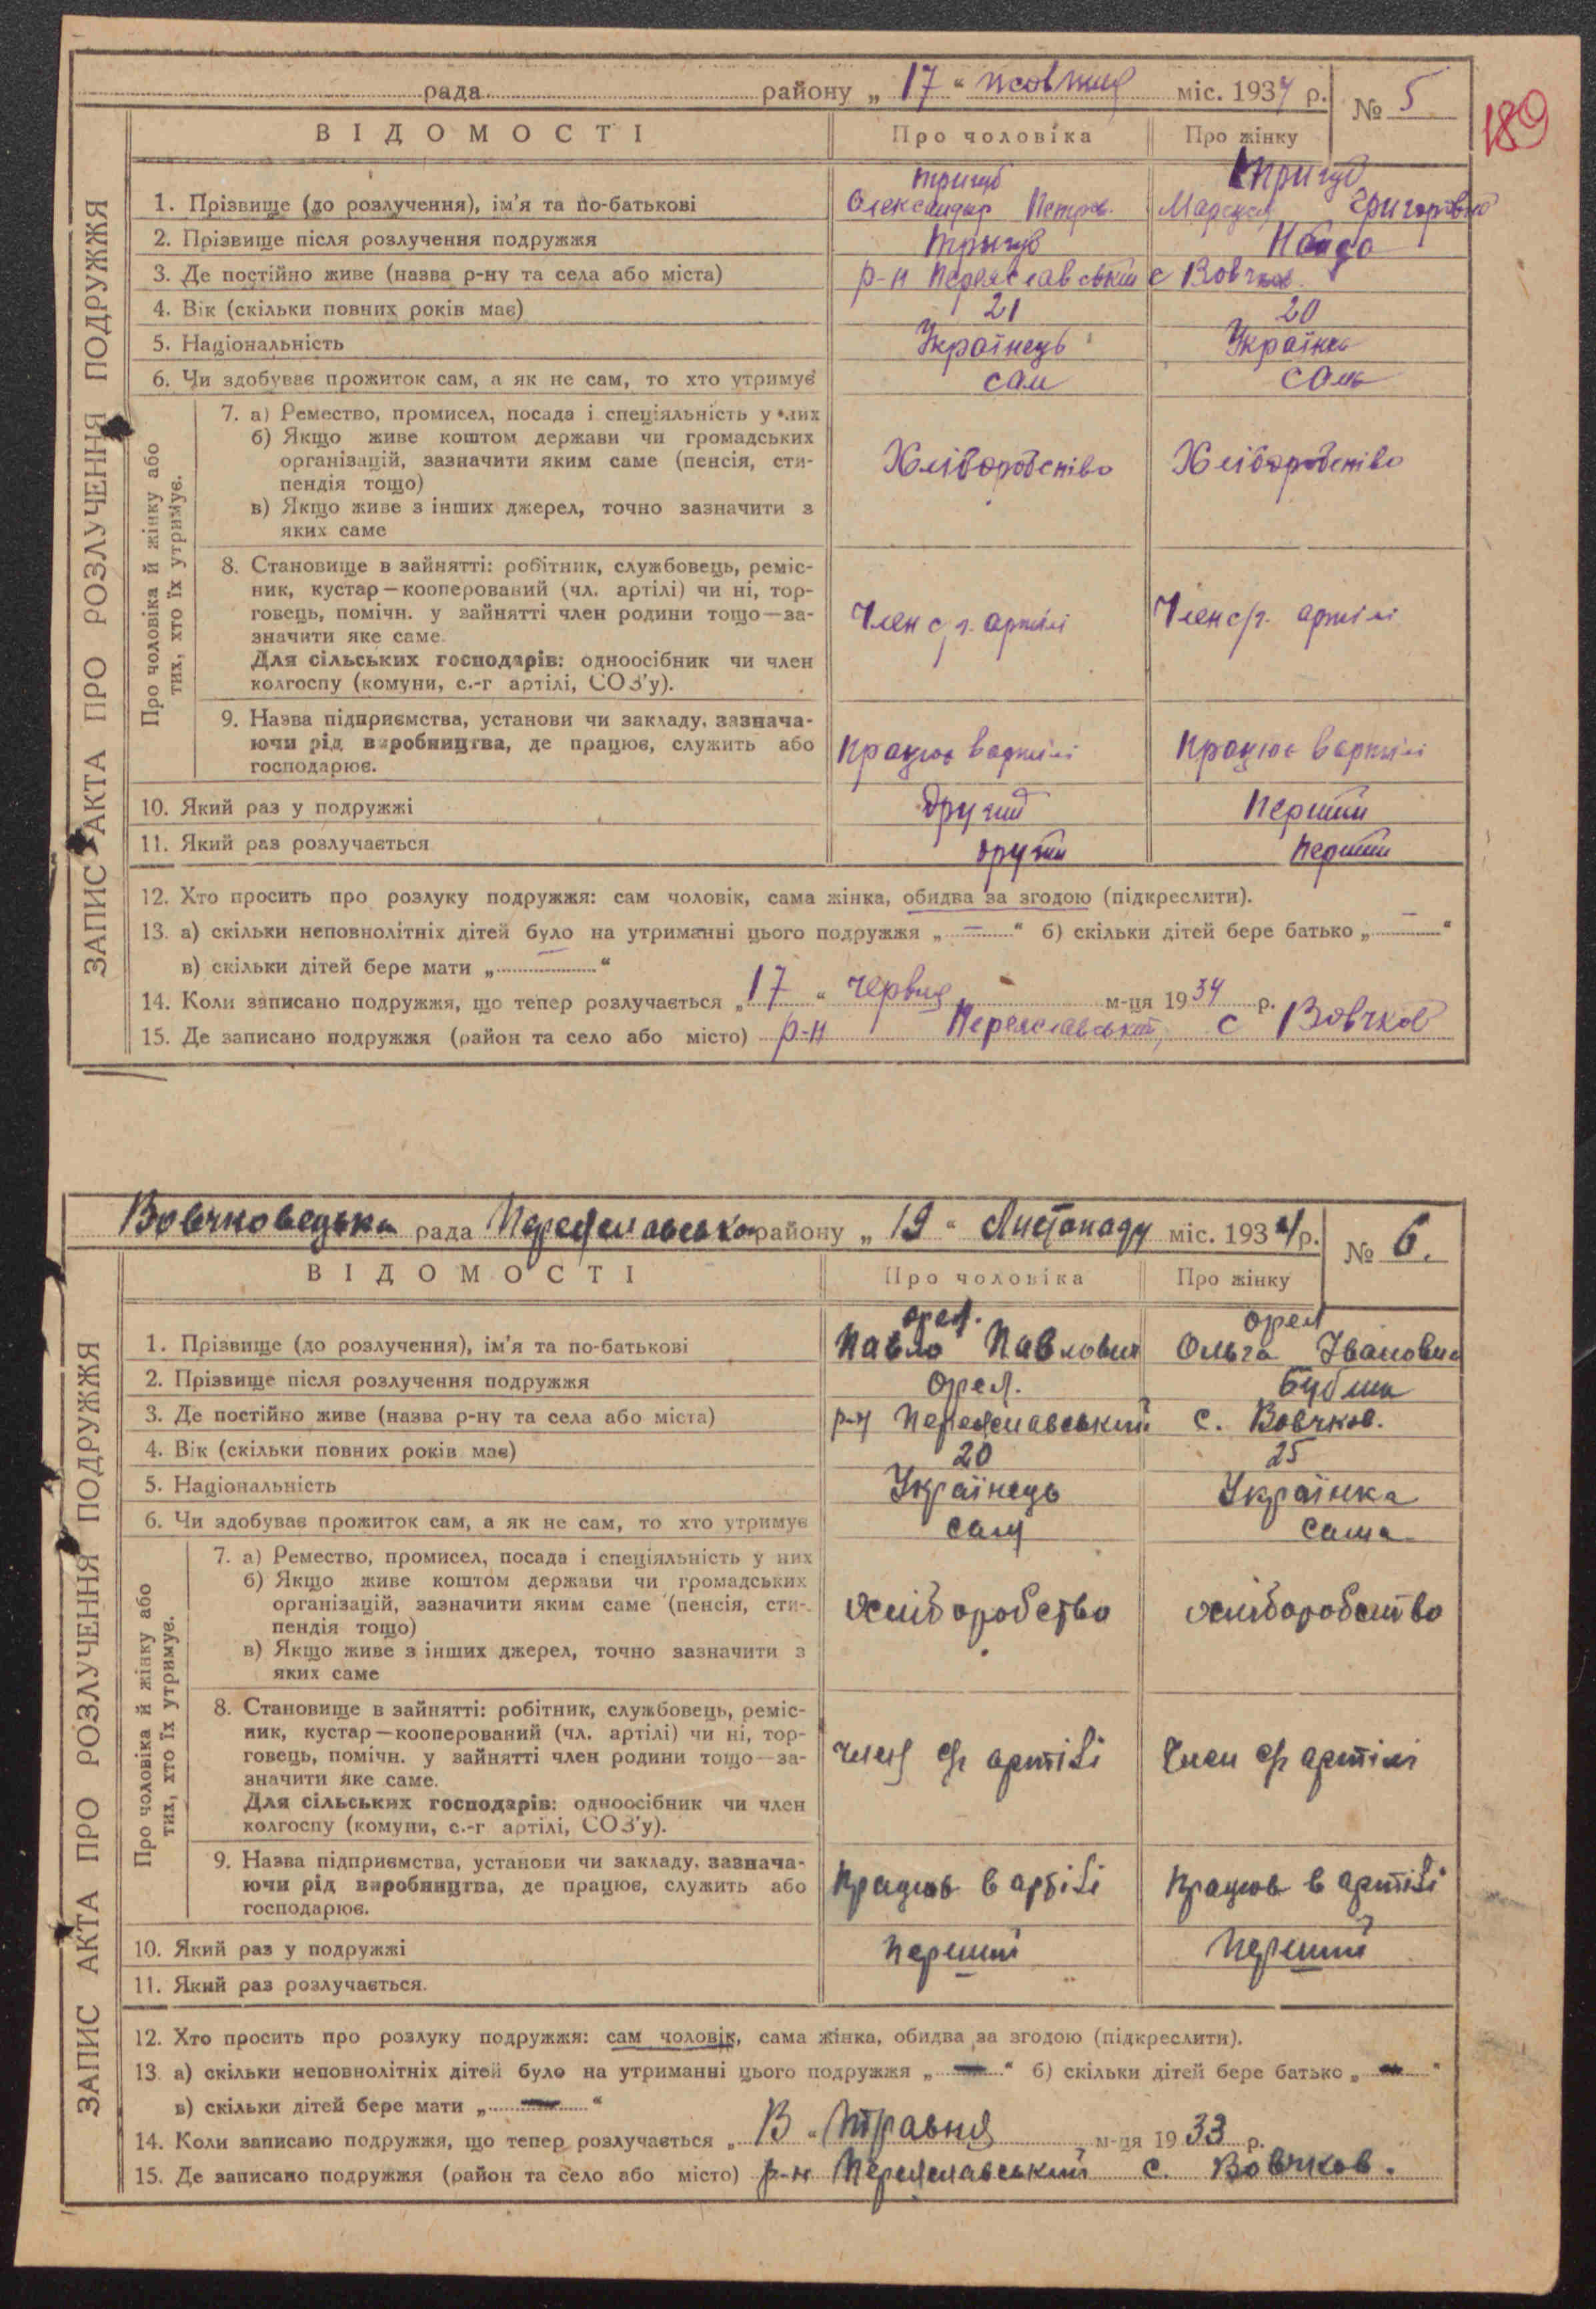 рада району „ 17 “ жовтня міс. 1934 р. № 5
189
ВІДОМОСТІ Про чоловіка Про жінку
ЗАПИС АКТА ПРО РОЗЛУЧЕННЯ ПОДРУЖЖЯ
Тригуб Тригуб
1. Прізвище (до розлучення), ім’я та по-батькові Олександр Петров. Григорівна
2. Прізвище після розлучення подружжя Тригуб
3. Де постійно живе (назва р-ну та села або міста) р-н Переяславський с Вовчков.
4. Вік (скільки повних років має) 21 20
5. Національність Українець Українка
6. Чи здобуває прожиток сам, а як не сам, то хто утримує сам сама
Про чоловіка й жінку або
тих, хто їх утримує.
7. а) Ремество, промисел, посада і спеціяльність у них
б) Якщо живе коштом держави чи громадських
організацій, зазначити яким саме (пенсія, сти- Хліборобство Хліборобство
пендія тощо)
в) Якщо живе з інших джерел, точно зазначити з
яких саме
8. Становище в зайнятті: робітник, службовець, реміс-
ник, кустар—кооперований (чл. артілі) чи ні, тор-
говець, помічн. у зайнятті член родини тощо—за- Член с/г. артілі Член с/г. артілі
значити яке саме.
Для сільських господарів: одноосібник чи член
колгоспу (комуни, с.-г артілі, СОЗ’у).
9. Назва підприємства, установи чи закладу, зазнача-
ючи рід виробництва, де працює, служить або Працює в артілі Працює в артілі
господарює.
10. Який раз у подружжі Другий Перший
11. Який раз розлучається другий Перший
12. Хто просить про розлуку подружжя: сам чоловік, сама жінка, обидва за згодою (підкреслити).
13. а) скільки неповнолітніх дітей було на утриманні цього подружжя „ — “ б) скільки дітей бере батько „ — “
в) скільки дітей бере мати „ — “
14. Коли записано подружжя, що тепер розлучається „ 17 “ червня м-ця 1934 р.
15. Де записано подружжя (район та село або місто) р-н Переяславський, с Вовчков
Вовчковецька рада Переяславського району „ 19 “ Листопаду міс. 1934 р. № 6.
ВІДОМОСТІ Про чоловіка Про жінку
ЗАПИС АКТА ПРО РОЗЛУЧЕННЯ ПОДРУЖЖЯ
Орел. Орел
1. Прізвище (до розлучення), ім’я та по-батькові Павло Павлович Ольга Івановна
2. Прізвище після розлучення подружжя Орел.
3. Де постійно живе (назва р-ну та села або міста) р-н Переяславський с. Вовчков.
4. Вік (скільки повних років має) 20 25
5. Національність Українець Українка
6. Чи здобуває прожиток сам, а як не сам, то хто утримує сам сама
Про чоловіка й жінку або
тих, хто їх утримує.
7. а) Ремество, промисел, посада і спеціяльність у них
б) Якщо живе коштом держави чи громадських
організацій, зазначити яким саме (пенсія, сти- хліборобство хліборобство
пендія тощо)
в) Якщо живе з інших джерел, точно зазначити з
яких саме
8. Становище в зайнятті: робітник, службовець, реміс-
ник, кустар—кооперований (чл. артілі) чи ні, тор-
говець, помічн. у зайнятті член родини тощо—за- член с/г артілі Член с/г артілі
значити яке саме.
Для сільських господарів: одноосібник чи член
колгоспу (комуни, с.-г артілі, СОЗ’у).
9. Назва підприємства, установи чи закладу, зазнача-
ючи рід виробництва, де працює, служить або Працює в артілі Працює в артілі
господарює.
10. Який раз у подружжі Перший Перший
11. Який раз розлучається.
12. Хто просить про розлуку подружжя: сам чоловік, сама жінка, обидва за згодою (підкреслити).
13. а) скільки неповнолітніх дітей було на утриманні цього подружжя „ — “ б) скільки дітей бере батько „ — “
в) скільки дітей бере мати „ — “
14. Коли записано подружжя, що тепер розлучається „ 13 “ Травня м-ця 1933 р.
15. Де записано подружжя (район та село або місто) р-н Переяславський с. Вовчков.